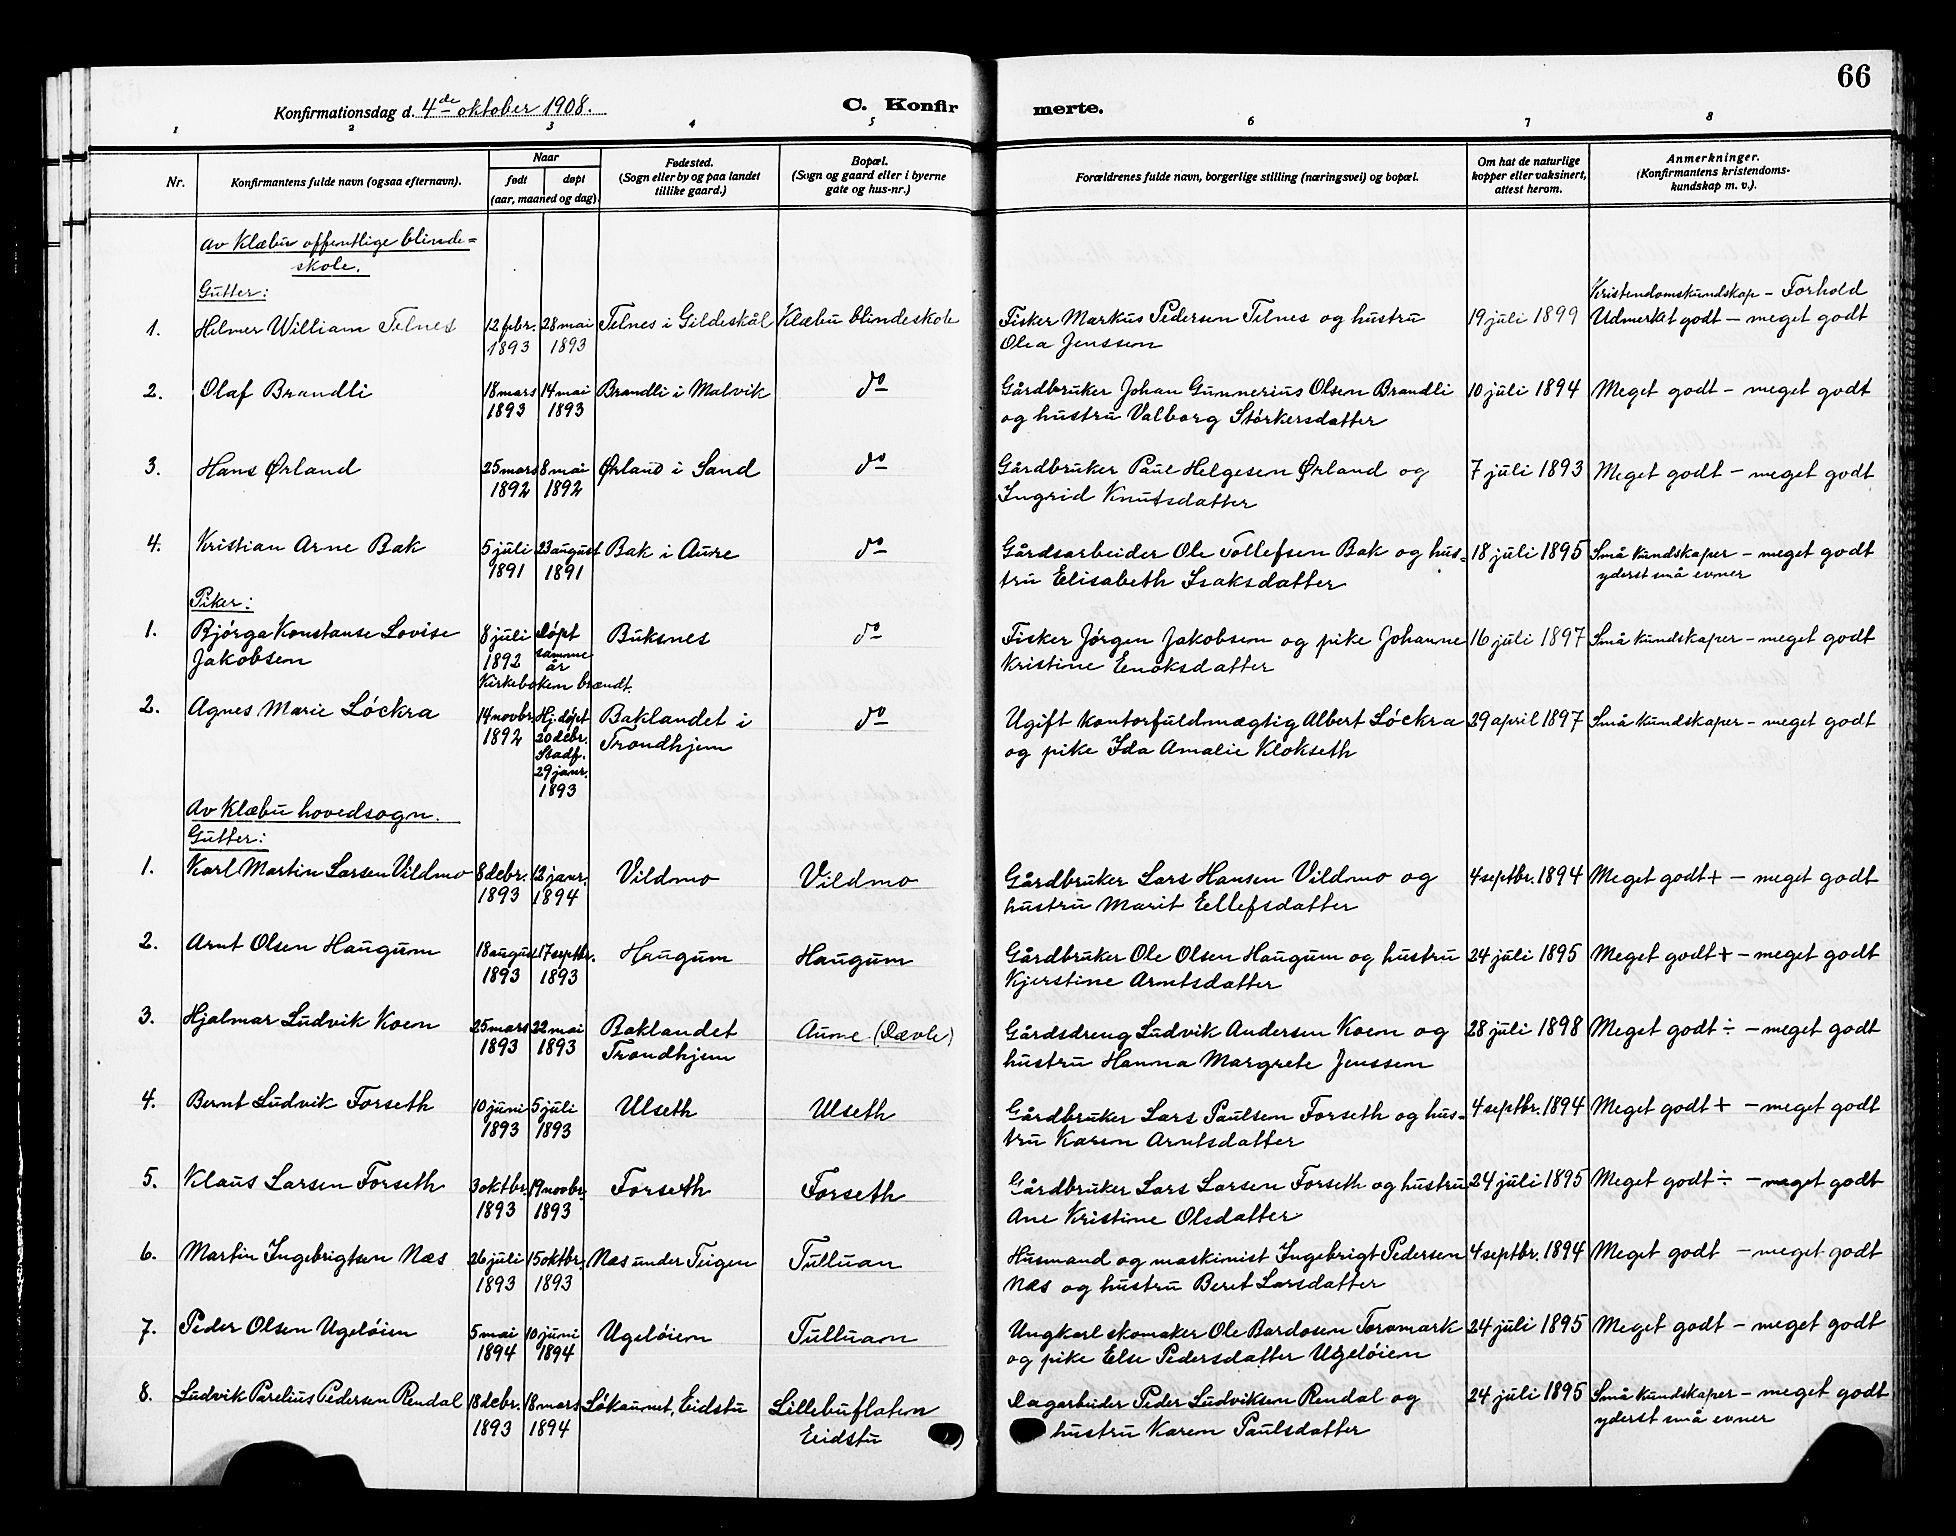 66
Konfirmationsdag d. 4de oktober 1908.
C. Konfirmerte.
1 2 3 4 5 6 7 8
Nr.
Konfirmantens fulde navn (ogsaa efternavn).
Naar
født
døpt
(aar, maaned og dag).
Fødested.
(Sogn eller by og paa landet
tillike gaard.)
Bopæl.
(Sogn og gaard eller i byerne
gate og hus-nr.)
Forældrenes fulde navn, borgerlige stilling (næringsvei) og bopæl.
Om hat de naturlige
kopper eller vaksinert,
attest herom.
Anmerkninger.
(Konfirmantens kristendoms-
kundskap m. v.).
Av Klæbu offentlige blinde=
skole.
Gutter:
Kristendomskundskap – Forhold
1. Helmer William Telnes 12 febr. 28 mai Telnes i Gildeskål Klæbu blindeskole Fisker Markus Pedersen Telnes og hustru 19 juli 1899 Udmerket godt – meget godt
1893 1893 Olea Jenssen
2. Olaf Brandli 18 mars 14 mai Brandli i Malvik do Gårdbruker Johan Gunnerius Olsen Brandli 10 juli 1894 Meget godt – meget godt
1893 1893 og hustru Valborg Størkersdatter
3. Hans Ørland 25 mars 8 mai Ørland i Sand do Gårdbruker Paul Helgesen Ørland og 7 juli 1893 Meget godt – meget godt
1892 1892 Ingrid Knutsdatter
4. Kristian Arne Bak 5 juli 23 august Bak i Aure do Gårdsarbeider Ole Tollefsen Bak og hus- 18 juli 1895 Små kundskaper – meget godt
1891 1891 tru Elisabeth Isaksdatter yderst små evner
Piker:
1. Bjørga Konstanse Lovise 8 juli Døpt Buksnes do Fisker Jørgen Jakobsen og pike Johanne 16 juli 1897 Små kundskaper – meget godt
Jakobsen 1892 samme Kristine Enoksdatter
år
Kirkeboken brændt.
2. Agnes Marie Løckra 14 novbr. Hj. døpt Baklandet i do Ugift kontorfuldmægtig Albert Løckra 29 april 1897 Små kundskaper – meget godt
1892 20 debr. Trondhjem og pike Ida Amalie Klokseth
Stadf.
29 janr.
1893
Av Klæbu hovedsogn.
Gutter:
1. Karl Martin Larsen Vildmo 8 debr. 12 janr. Vildmo Vildmo Gårdbruker Lars Hansen Vildmo og 4 septbr. 1894 Meget godt + – meget godt
1893 1894 hustru Marit Ellefsdatter
2. Arnt Olsen Haugum 18 august 17 septbr. Haugum Haugum Gårdbruker Ole Olsen Haugum og hustru 24 juli 1895 Meget godt + – meget godt
1893 1893 Kjerstine Arntsdatter
3. Hjalmar Ludvik Koen 25 mars 22 mai Baklandet Aune (Dævle) Gårdsdreng Ludvik Andersen Koen og 28 juli 1898 Meget godt ÷ – meget godt
1893 1893 Trondhjem hustru Hanna Margrete Jenssen
4. Bernt Ludvik Forseth 10 juni 5 juli Ulseth Ulseth Gårdbruker Lars Paulsen Forseth og hus- 4 septbr. 1894 Meget godt + – meget godt
1893 1893 tru Karen Arntsdatter
5. Klaus Larsen Forseth 3 oktbr. 19 novbr. Forseth Forseth Gårdbruker Lars Larsen Forseth og hustru 24 juli 1895 Meget godt ÷ – meget godt
1893 1893 Ane Kristine Olsdatter
6. Martin Ingebrigtsen Næs 26 juli 15 oktbr. Næs under Teigen Tulluan Husmand og maskinist Ingebrigt Pedersen 4 septbr. 1894 Meget godt – meget godt
1893 1893 Næs og hustru Beret Larsdatter
7. Peder Olsen Ugeløien 5 mai 10 juni Ugeløien Tulluan Ungkarl skomaker Ole Bardosen Toremark 24 juli 1895 Meget godt – meget godt
1894 1894 og pike Else Pedersdatter Ugeløien
8. Ludvik Parelius Pedersen Rendal 18 debr. 18 mars Løkaunet, Eidstu Lillebuflaten Dagarbeider Peder Ludviksen Rendal og 24 juli 1895 Små kundskaper – meget godt
1893 1894 Eidstu hustru Karen Paulsdatter yderst små evner